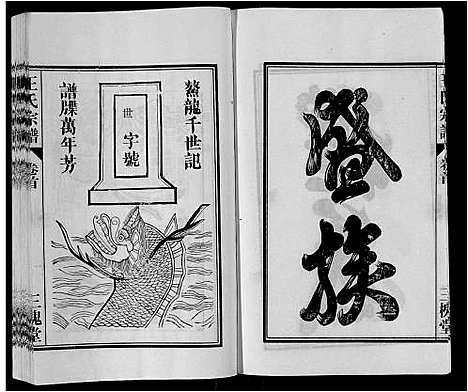 盛族
王氏宗譜
卷首
三槐堂
鰲龍千世記
世字號
譜牒萬年芳
王氏宗譜
卷首
三槐堂